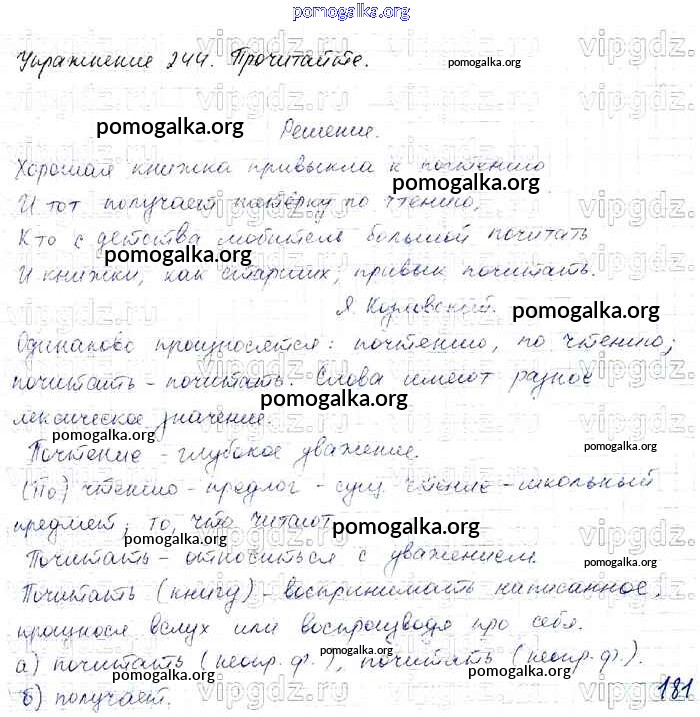 pomogalka.org
Упражнение 244. Прочитайте.
pomogalka.org
pomogalka.org
Решение.
Хорошая книжка привыкла к почтению
pomogalka.org
И тот получает пятёрку по чтению,
Кто с детства любитель большой почитать
pomogalka.org
И книжки, как старших, привык почитать.
Я. Козловский.
pomogalka.org
Одинаково произносятся: почтению, по чтению;
почитать - почитать. Слова имеют разное
pomogalka.org
лексическое значение.
pomogalka.org
Почтение - глубокое уважение.
pomogalka.org
(По) чтению - предлог - сущ. чтение - школьный
предмет; то, что читают
pomogalka.org
pomogalka.org
Почитать - относиться с уважением.
Почитать (книгу) - воспринимать написанное,
произнося вслух или воспроизводя про себя.
pomogalka.org
а) почитать (неопр. ф.), почитать (неопр. ф.).
pomogalka.org
pomogalka.org
б) получает.
181
vipgdz.